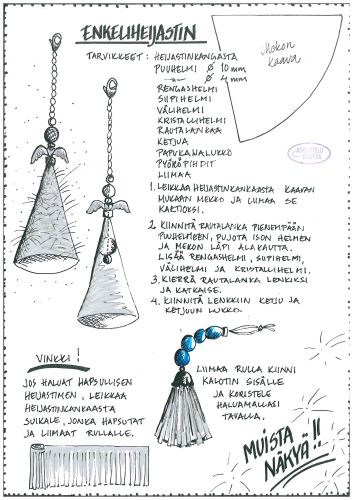 ENKELIHEIJASTIN
TARVIKKEET: HEIJASTINKANGASTA
PUUHELMI Ø 10 mm
-"- Ø 4 mm
RENGASHELMI
SIIPIHELMI
VÄLIHELMI
KRISTALLIHELMI
RAUTALANKAA
KETJUA
PAPUKAIJALUKKO
PYÖRÖPIHDIT
LIIMAA
Mekon
kaava
1. LEIKKAA HEIJASTINKANKAASTA KAAVAN
MUKAAN MEKKO JA LIIMAA SE
KARTIOKSI.
2. KIINNITÄ RAUTALANKA PIENEMPÄÄN
PUUHELMEEN, PUJOTA ISON HELMEN
JA MEKON LÄPI ALAKAUTTA.
LISÄÄ RENGASHELMI, SIIPIHELMI,
VÄLIHELMI JA KRISTALLIHELMI.
3. KIERRÄ RAUTALANKA LENKIKSI
JA KATKAISE.
4. KIINNITÄ LENKKIIN KETJU JA
KETJUUN LUKKO.
VINKKI!
JOS HALUAT HAPSULLISEN
HEIJASTIMEN, LEIKKAA
HEIJASTINKANKAASTA
SUIKALE, JONKA HAPSUTAT
JA LIIMAAT RULLALLE.
LIIMAA RULLA KIINNI
KALOTIN SISÄLLE
JA KORISTELE
HALUAMALLASI
TAVALLA.
MUISTA
NÄKYÄ!!